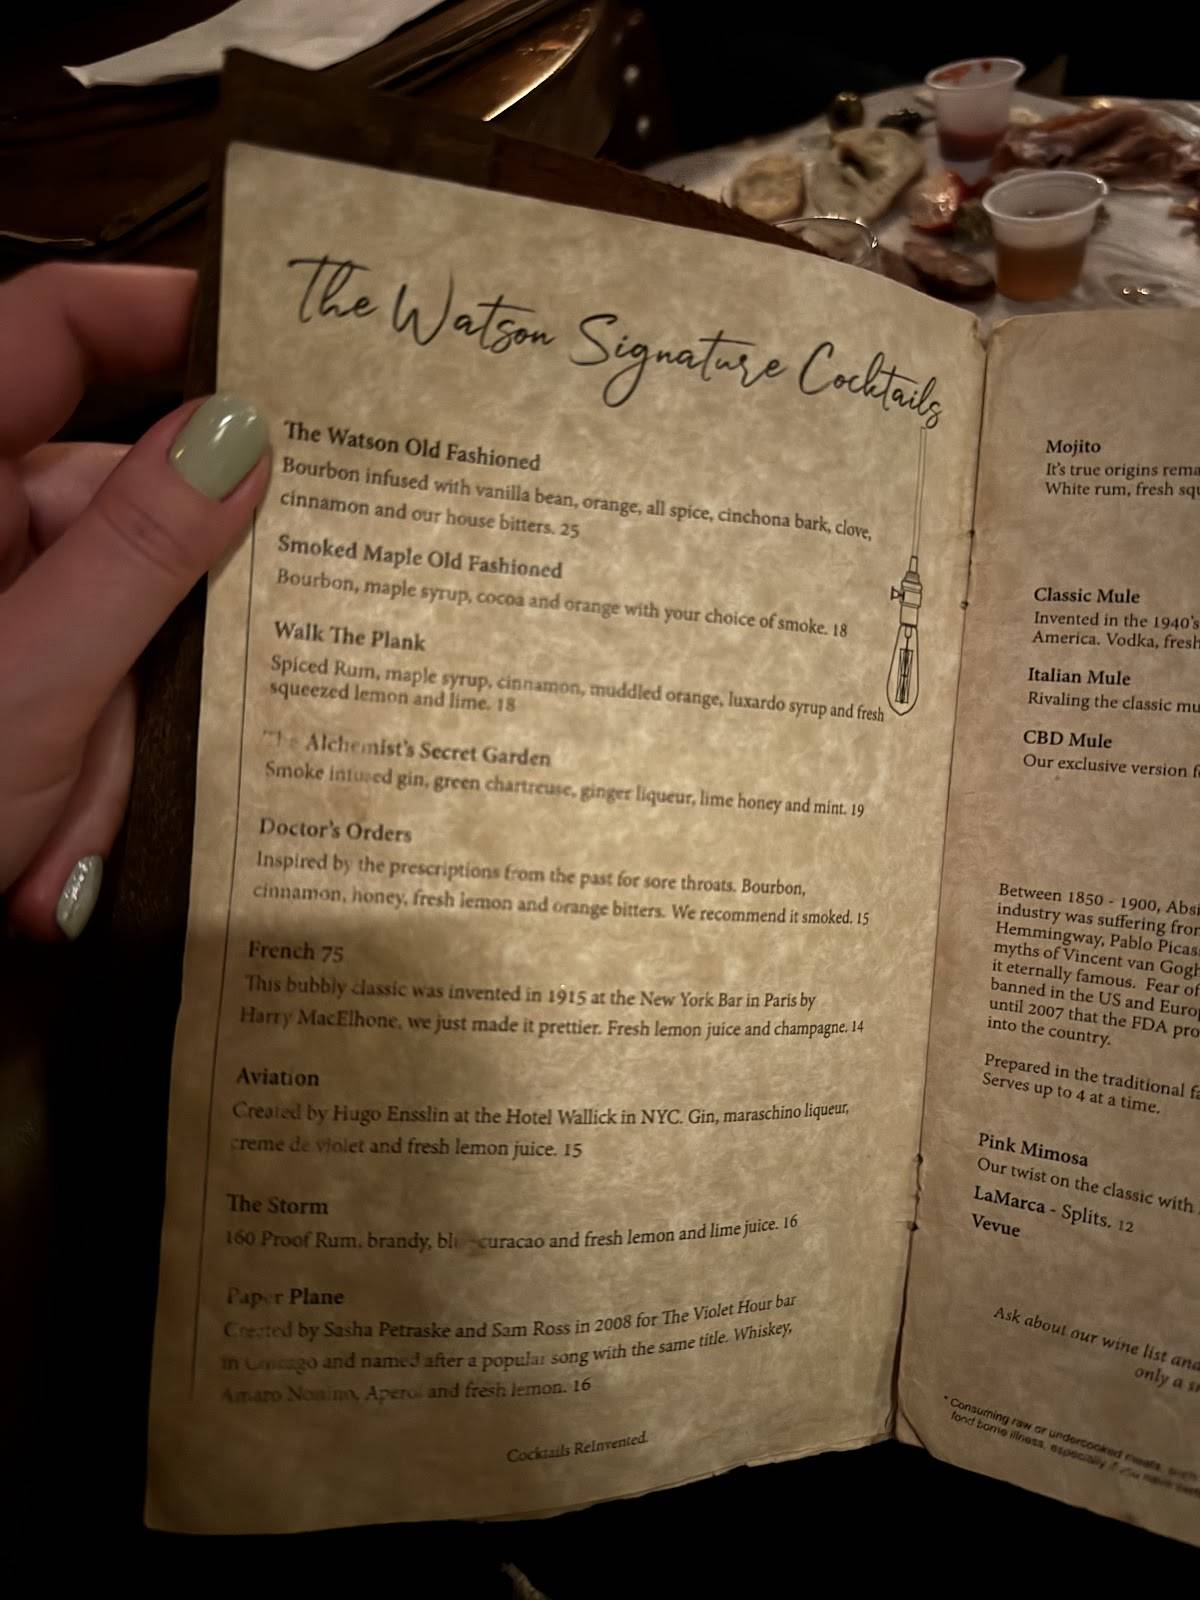 The Watson Signature Cocktails
The Watson Old Fashioned
Bourbon infused with vanilla bean, orange, all spice, cinchona bark, clove,
cinnamon and our house bitters. 25
Smoked Maple Old Fashioned
Bourbon, maple syrup, cocoa and orange with your choice of smoke. 18
Walk The Plank
Spiced Rum, maple syrup, cinnamon, muddled orange, luxardo syrup and fresh
squeezed lemon and lime. 18
The Alchemist's Secret Garden
Smoke infused gin, green chartreuse, ginger liqueur, lime honey and mint. 19
Doctor's Orders
Inspired by the prescriptions from the past for sore throats. Bourbon,
cinnamon, honey, fresh lemon and orange bitters. We recommend it smoked. 15
French 75
This bubbly classic was invented in 1915 at the New York Bar in Paris by
Harry MacElhone, we just made it prettier. Fresh lemon juice and champagne. 14
Aviation
Created by Hugo Ensslin at the Hotel Wallick in NYC. Gin, maraschino liqueur,
creme de violet and fresh lemon juice. 15
The Storm
160 Proof Rum, brandy, curacao and fresh lemon and lime juice. 16
Paper Plane
Created by Sasha Petraske and Sam Ross in 2008 for The Violet Hour bar
in Chicago and named after a popular song with the same title. Whiskey,
Amaro Nonino, Aperol and fresh lemon. 16
Cocktails ReInvented.
Mojito
It's true origins rema
White rum, fresh squ
Classic Mule
Invented in the 1940's
America. Vodka, fresh
Italian Mule
Rivaling the classic mu
CBD Mule
Our exclusive version f
Between 1850 - 1900, Absi
industry was suffering from
Hemmingway, Pablo Picas
myths of Vincent van Gogh
it eternally famous. Fear of
banned in the US and Euro
until 2007 that the FDA pro
into the country.
Prepared in the traditional fa
Serves up to 4 at a time.
Pink Mimosa
Our twist on the classic with
LaMarca - Splits. 12
Vevue
Ask about our wine list and
only a s
* Consuming raw or undercooked meats, such
food borne illness, especially if you have certa